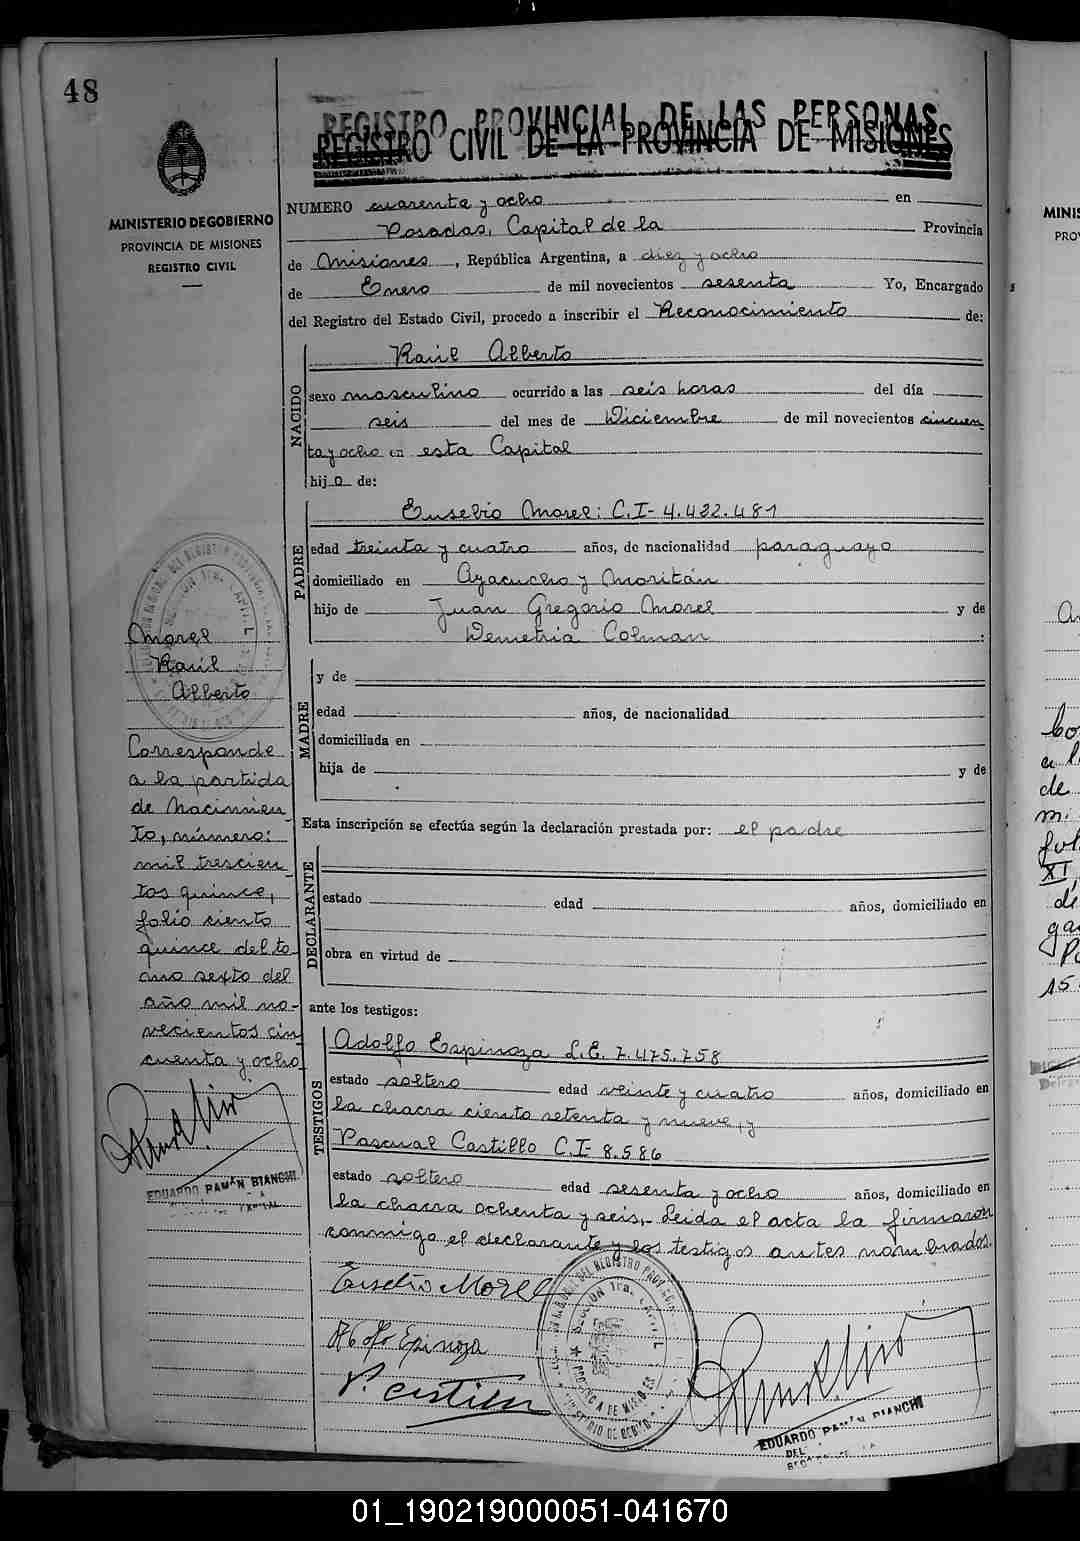 48
REGISTRO PROVINCIAL DE LAS PERSONAS
REGISTRO CIVIL DE LA PROVINCIA DE MISIONES
MINISTERIO DE GOBIERNO
PROVINCIA DE MISIONES
REGISTRO CIVIL
NUMERO cuarenta y ocho en
Posadas, Capital de la Provincia
de Misiones, República Argentina, a diez y ocho
de Enero de mil novecientos sesenta Yo, Encargado
del Registro del Estado Civil, procedo a inscribir el Reconocimiento de:
NACIDO
Raúl Alberto
sexo masculino ocurrido a las seis horas del día
seis del mes de Diciembre de mil novecientos cincuen
ta y ocho en esta Capital
hijo de:
PADRE
Eusebio Morel: C.I- 4.422.481
edad treinta y cuatro años, de nacionalidad paraguayo
domiciliado en Ayacucho y Moritán
hijo de Juan Gregorio Morel y de
Demetria Colman :
MADRE
y de
edad años, de nacionalidad
domiciliada en
hija de y de
Esta inscripción se efectúa según la declaración prestada por: el padre
DECLARANTE
estado edad años, domiciliado en
obra en virtud de
ante los testigos:
TESTIGOS
Adolfo Espinoza L.E. 7.475.758
estado soltero edad veinte y cuatro años, domiciliado en
la chacra ciento setenta y nueve, y
Pascual Castillo C.I- 8.586
estado soltero edad sesenta y ocho años, domiciliado en
la chacra ochenta y seis,- Leida el acta la firmaron
conmigo el declarante y los testigos antes nombrados.
Eusebio Morel
Adolfo Espinoza
P. Castillo
EDUARDO RAMÓN BIANCHI
Morel
Raúl
Alberto
Corresponde
a la partida
de Nacimien
to, número:
mil trescien
tos quince,
folio ciento
quince del to
mo sexto del
año mil no-
vecientos cin
cuenta y ocho
EDUARDO RAMÓN BIANCHI
MINIS
PRO
de
15
01_190219000051-041670